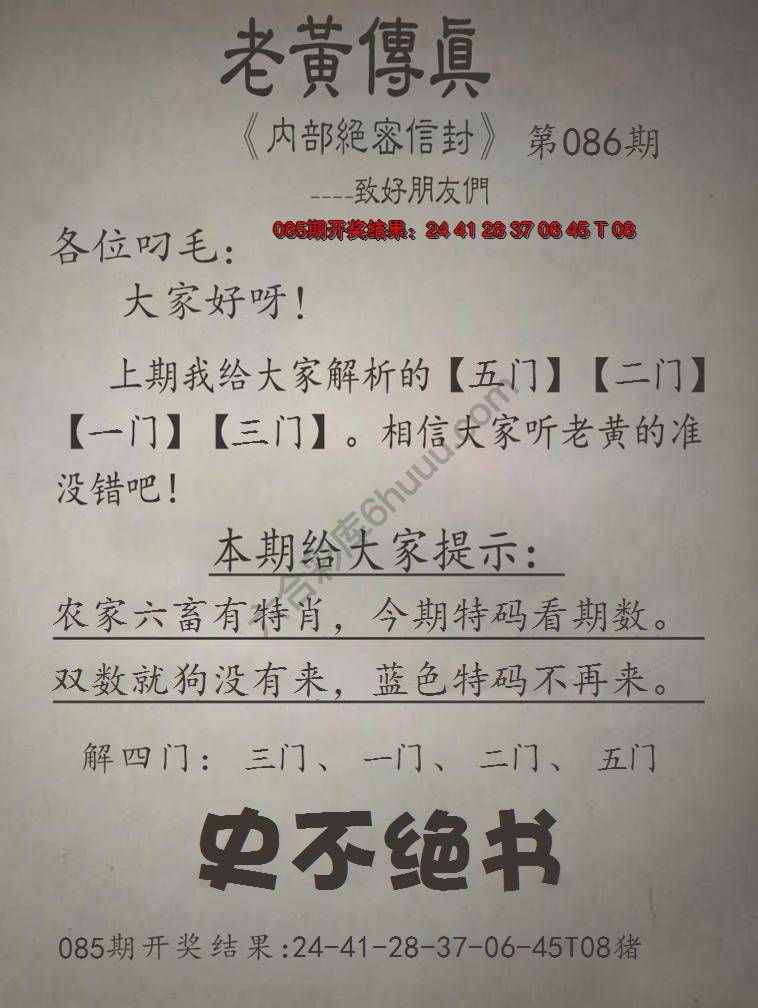 老黃傳眞
《内部絕密信封》 第086期
----致好朋友們
085期开奖结果：24 41 28 37 06 45 T 08
各位叼毛：
大家好呀！
上期我给大家解析的【五门】【二门】
【一门】【三门】。相信大家听老黄的准
没错吧！
本期给大家提示：
农家六畜有特肖，今期特码看期数。
双数就狗没有来，蓝色特码不再来。
解四门：三门、一门、二门、五门
史不绝书
085期开奖结果:24-41-28-37-06-45T08猪
六合彩库6huuu.com